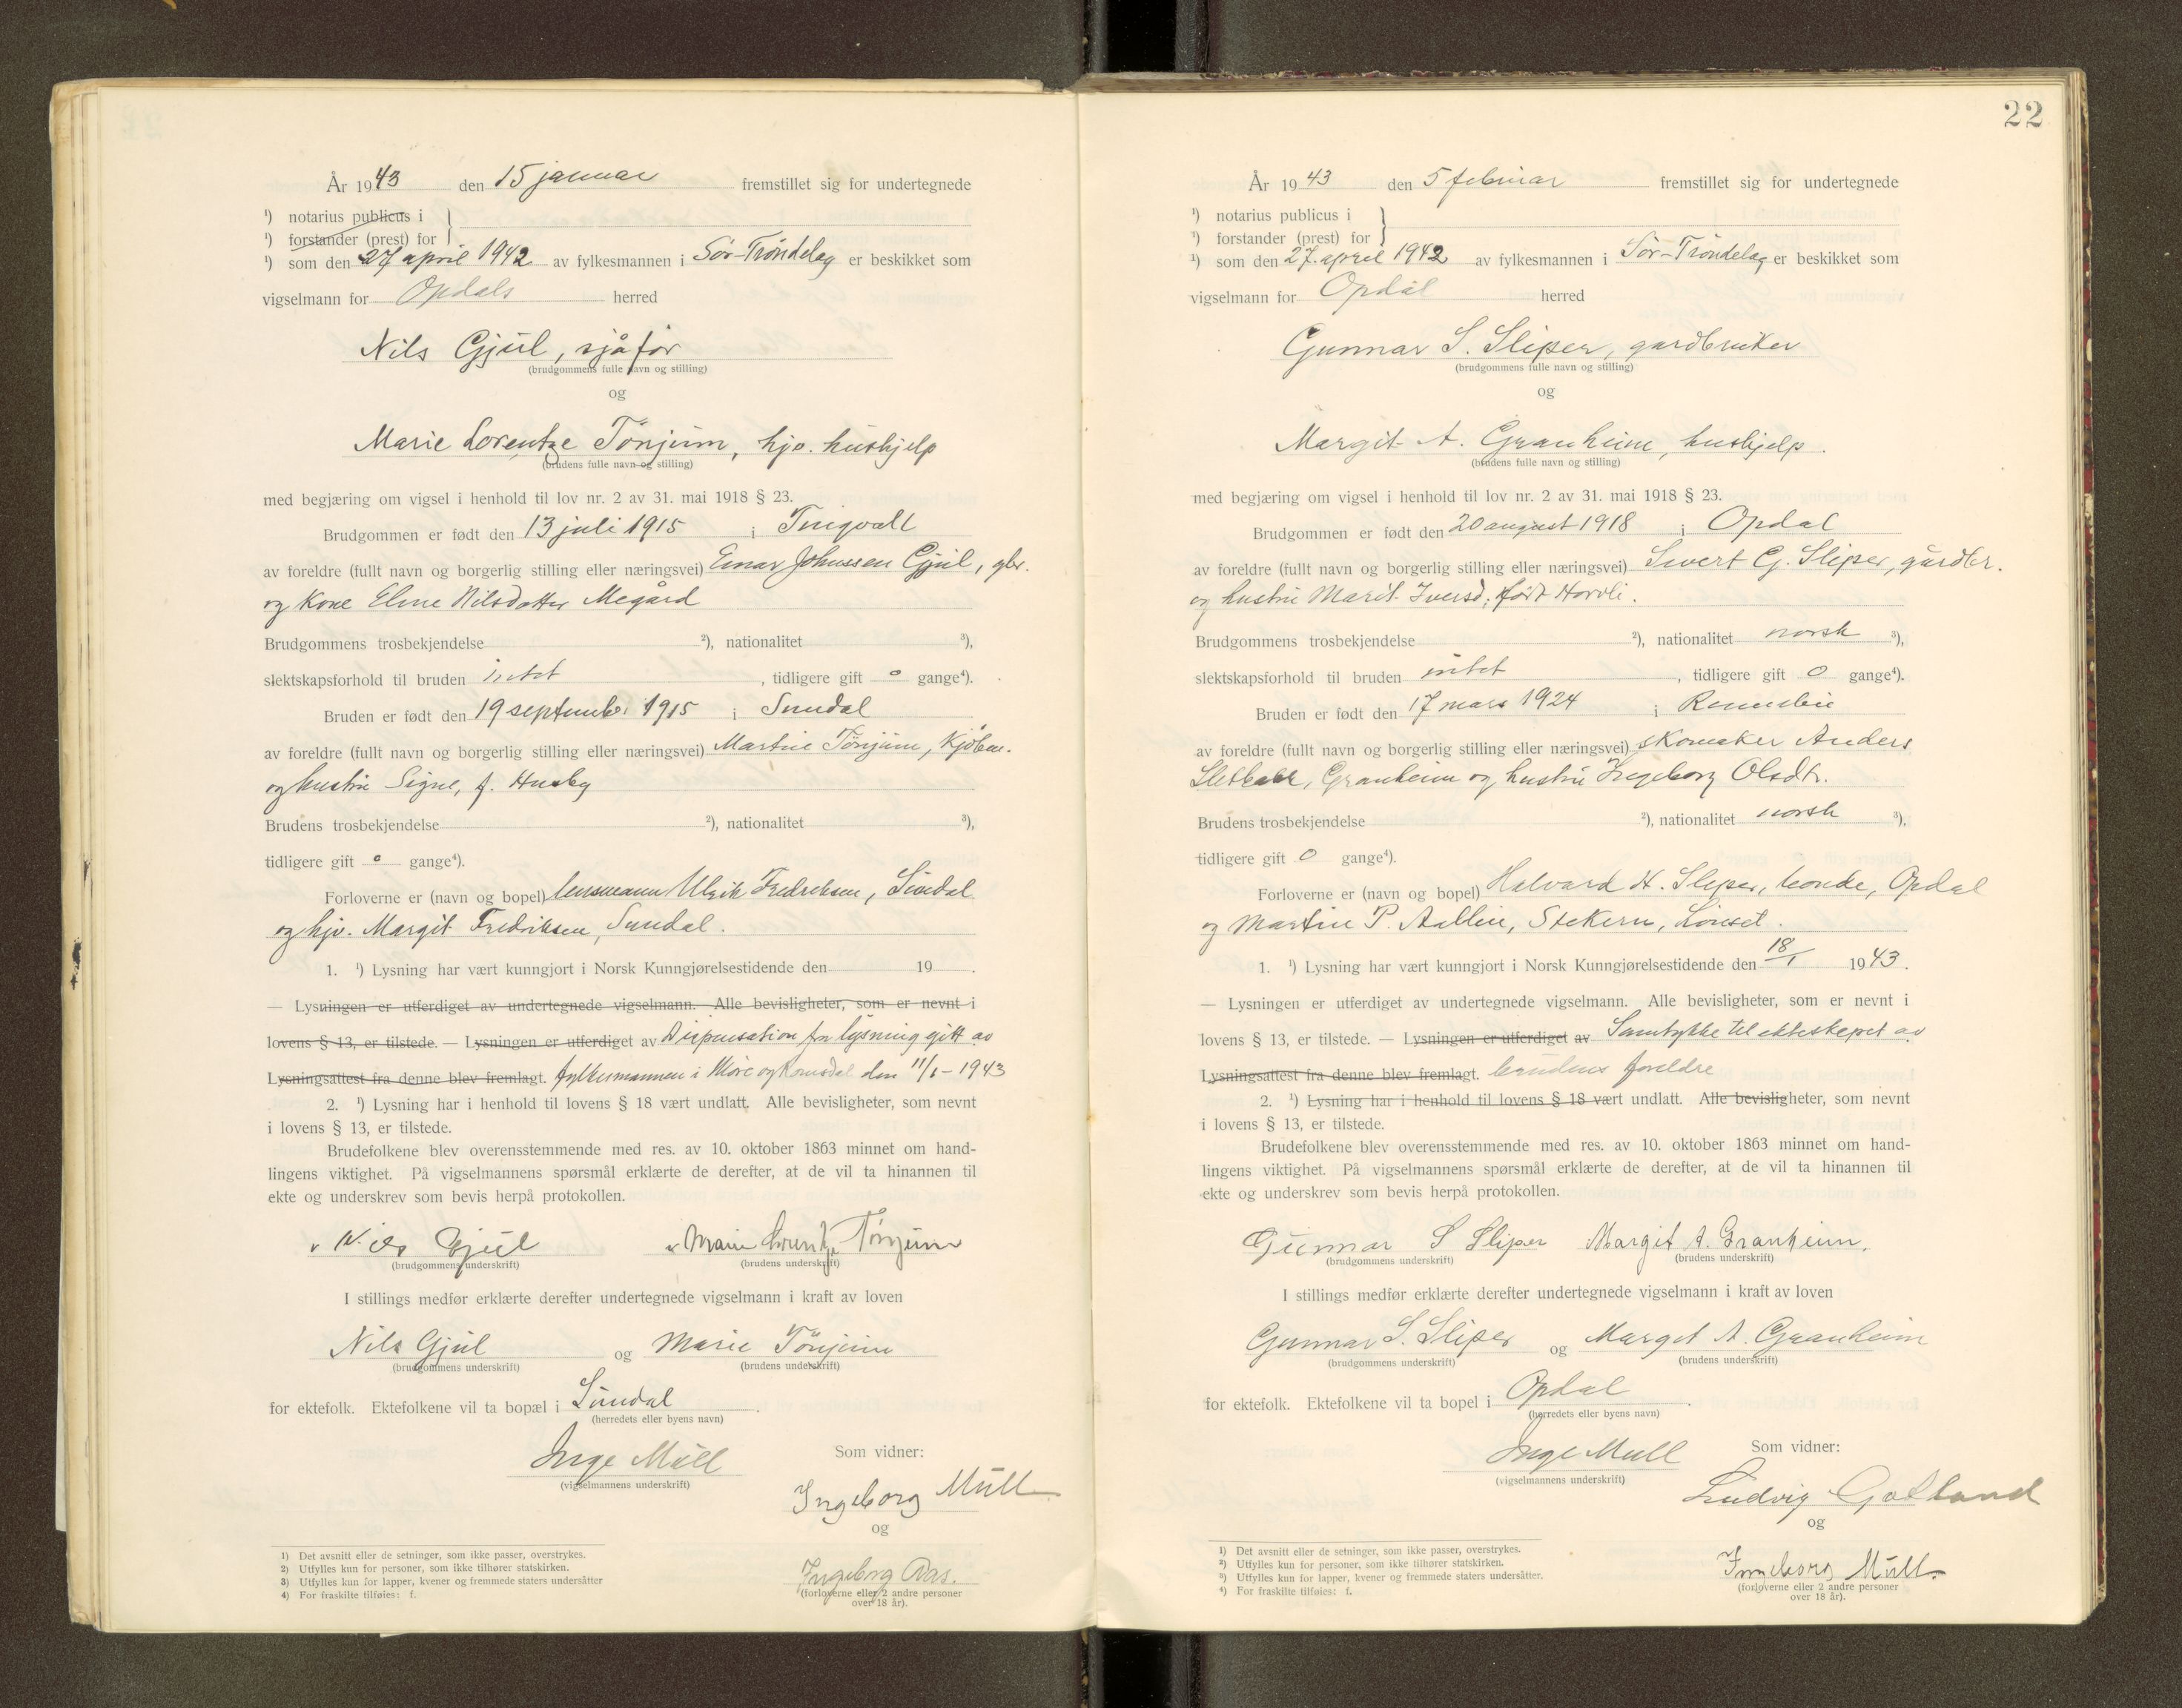 År 1943 den 15 januar fremstillet sig for undertegnede
¹) notarius publicus i
¹) forstander (prest) for
¹) som den 27 april 1942 av fylkesmannen i Sör-Tröndelag er beskikket som
vigselmann for Opdals herred
Nils Gjul, sjåfør
(brudgommens fulle navn og stilling)
og
Marie Lorentze Tönjum, hjv. hushjelp
(brudens fulle navn og stilling)
med begjæring om vigsel i henhold til lov nr. 2 av 31. mai 1918 § 23.
Brudgommen er født den 13 juli 1915 i Tingvoll
av foreldre (fullt navn og borgerlig stilling eller næringsvei) Einar Johnssen Gjul, gbr.
og kone Eline Nilsdatter Megård
Brudgommens trosbekjendelse ²), nationalitet ³),
slektskapsforhold til bruden intet, tidligere gift 0 gange⁴).
Bruden er født den 19 september 1915 i Sundal
av foreldre (fullt navn og borgerlig stilling eller næringsvei) Martin Tönjum, Kjöbm.
og hustru Signe, f. Husby
Brudens trosbekjendelse ²), nationalitet ³),
tidligere gift 0 gange⁴).
Forloverne er (navn og bopel) lensmann Ulrik Fredriksen, Sundal
og hjv. Margit Fredriksen, Sundal.
1. ¹) Lysning har vært kunngjort i Norsk Kunngjørelsestidende den 19 .
— Lysningen er utferdiget av undertegnede vigselmann. Alle bevisligheter, som er nevnt i
lovens § 13, er tilstede. — Lysningen er utferdiget av Dispensation fra lysning gitt av
Lysningsattest fra denne blev fremlagt. fylkesmannen i Möre og Romsdal den 11/1-1943
2. ¹) Lysning har i henhold til lovens § 18 vært undlatt. Alle bevisligheter, som nevnt
i lovens § 13, er tilstede.
Brudefolkene blev overensstemmende med res. av 10. oktober 1863 minnet om hand-
lingens viktighet. På vigselmannens spørsmål erklærte de derefter, at de vil ta hinannen til
ekte og underskrev som bevis herpå protokollen.
Nils Gjul Marie Lorentze Tönjum
(brudgommens underskrift) (brudens underskrift)
I stillings medfør erklærte derefter undertegnede vigselmann i kraft av loven
Nils Gjul og Marie Tönjum
(brudgommens underskrift) (brudens underskrift)
for ektefolk. Ektefolkene vil ta bopæl i Sundal .
(herredets eller byens navn)
Inge Mull Som vidner:
(vigselmannens underskrift)
Ingeborg Mull
og
Ingeborg Aas.
(forloverne eller 2 andre personer
over 18 år).
1) Det avsnitt eller de setninger, som ikke passer, overstrykes.
2) Utfylles kun for personer, som ikke tilhører statskirken.
3) Utfylles kun for lapper, kvener og fremmede staters undersåtter
4) For fraskilte tilføies: f.
22
År 1943 den 5 februar fremstillet sig for undertegnede
¹) notarius publicus i
¹) forstander (prest) for
¹) som den 27. april 1942 av fylkesmannen i Sör-Tröndelag er beskikket som
vigselmann for Opdal herred
Gunnar S. Sliper, gardbruker
(brudgommens fulle navn og stilling)
og
Margit A. Granheim, hushjelp.
(brudens fulle navn og stilling)
med begjæring om vigsel i henhold til lov nr. 2 av 31. mai 1918 § 23.
Brudgommen er født den 20 august 1918 i Opdal
av foreldre (fullt navn og borgerlig stilling eller næringsvei) Sivert G. Sliper, gårdbr.
og hustru Marit Iversd. født Horvli.
Brudgommens trosbekjendelse ²), nationalitet norsk ³),
slektskapsforhold til bruden intet, tidligere gift 0 gange⁴).
Bruden er født den 17 mars 1924 i Rennebu
av foreldre (fullt navn og borgerlig stilling eller næringsvei) skomaker Anders
Granheim og hustru Ingeborg Olsdtr.
Brudens trosbekjendelse ²), nationalitet norsk ³),
tidligere gift 0 gange⁴).
Forloverne er (navn og bopel) Halvard H. Sliper, bonde, Opdal
og Martin P. Aalbu, Stekern, Lönset.
1. ¹) Lysning har vært kunngjort i Norsk Kunngjørelsestidende den 18/1 1943.
— Lysningen er utferdiget av undertegnede vigselmann. Alle bevisligheter, som er nevnt i
lovens § 13, er tilstede. — Lysningen er utferdiget av Samtykke til ekteskapet av
Lysningsattest fra denne blev fremlagt. brudens foreldre
2. ¹) Lysning har i henhold til lovens § 18 vært undlatt. Alle bevisligheter, som nevnt
i lovens § 13, er tilstede.
Brudefolkene blev overensstemmende med res. av 10. oktober 1863 minnet om hand-
lingens viktighet. På vigselmannens spørsmål erklærte de derefter, at de vil ta hinannen til
ekte og underskrev som bevis herpå protokollen.
Gunnar S Sliper Margit A. Granheim.
(brudgommens underskrift) (brudens underskrift)
I stillings medfør erklærte derefter undertegnede vigselmann i kraft av loven
Gunnar S. Sliper og Margit A. Granheim
(brudgommens underskrift) (brudens underskrift)
for ektefolk. Ektefolkene vil ta bopel i Opdal .
(herredets eller byens navn)
Inge Mull Som vidner:
(vigselmannens underskrift)
Ludvig Gotland
og
Ingeborg Mull.
(forloverne eller 2 andre personer
over 18 år).
1) Det avsnitt eller de setninger, som ikke passer, overstrykes.
2) Utfylles kun for personer, som ikke tilhører statskirken.
3) Utfylles kun for lapper, kvener og fremmede staters undersåtter.
4) For fraskilte tilføies: f.